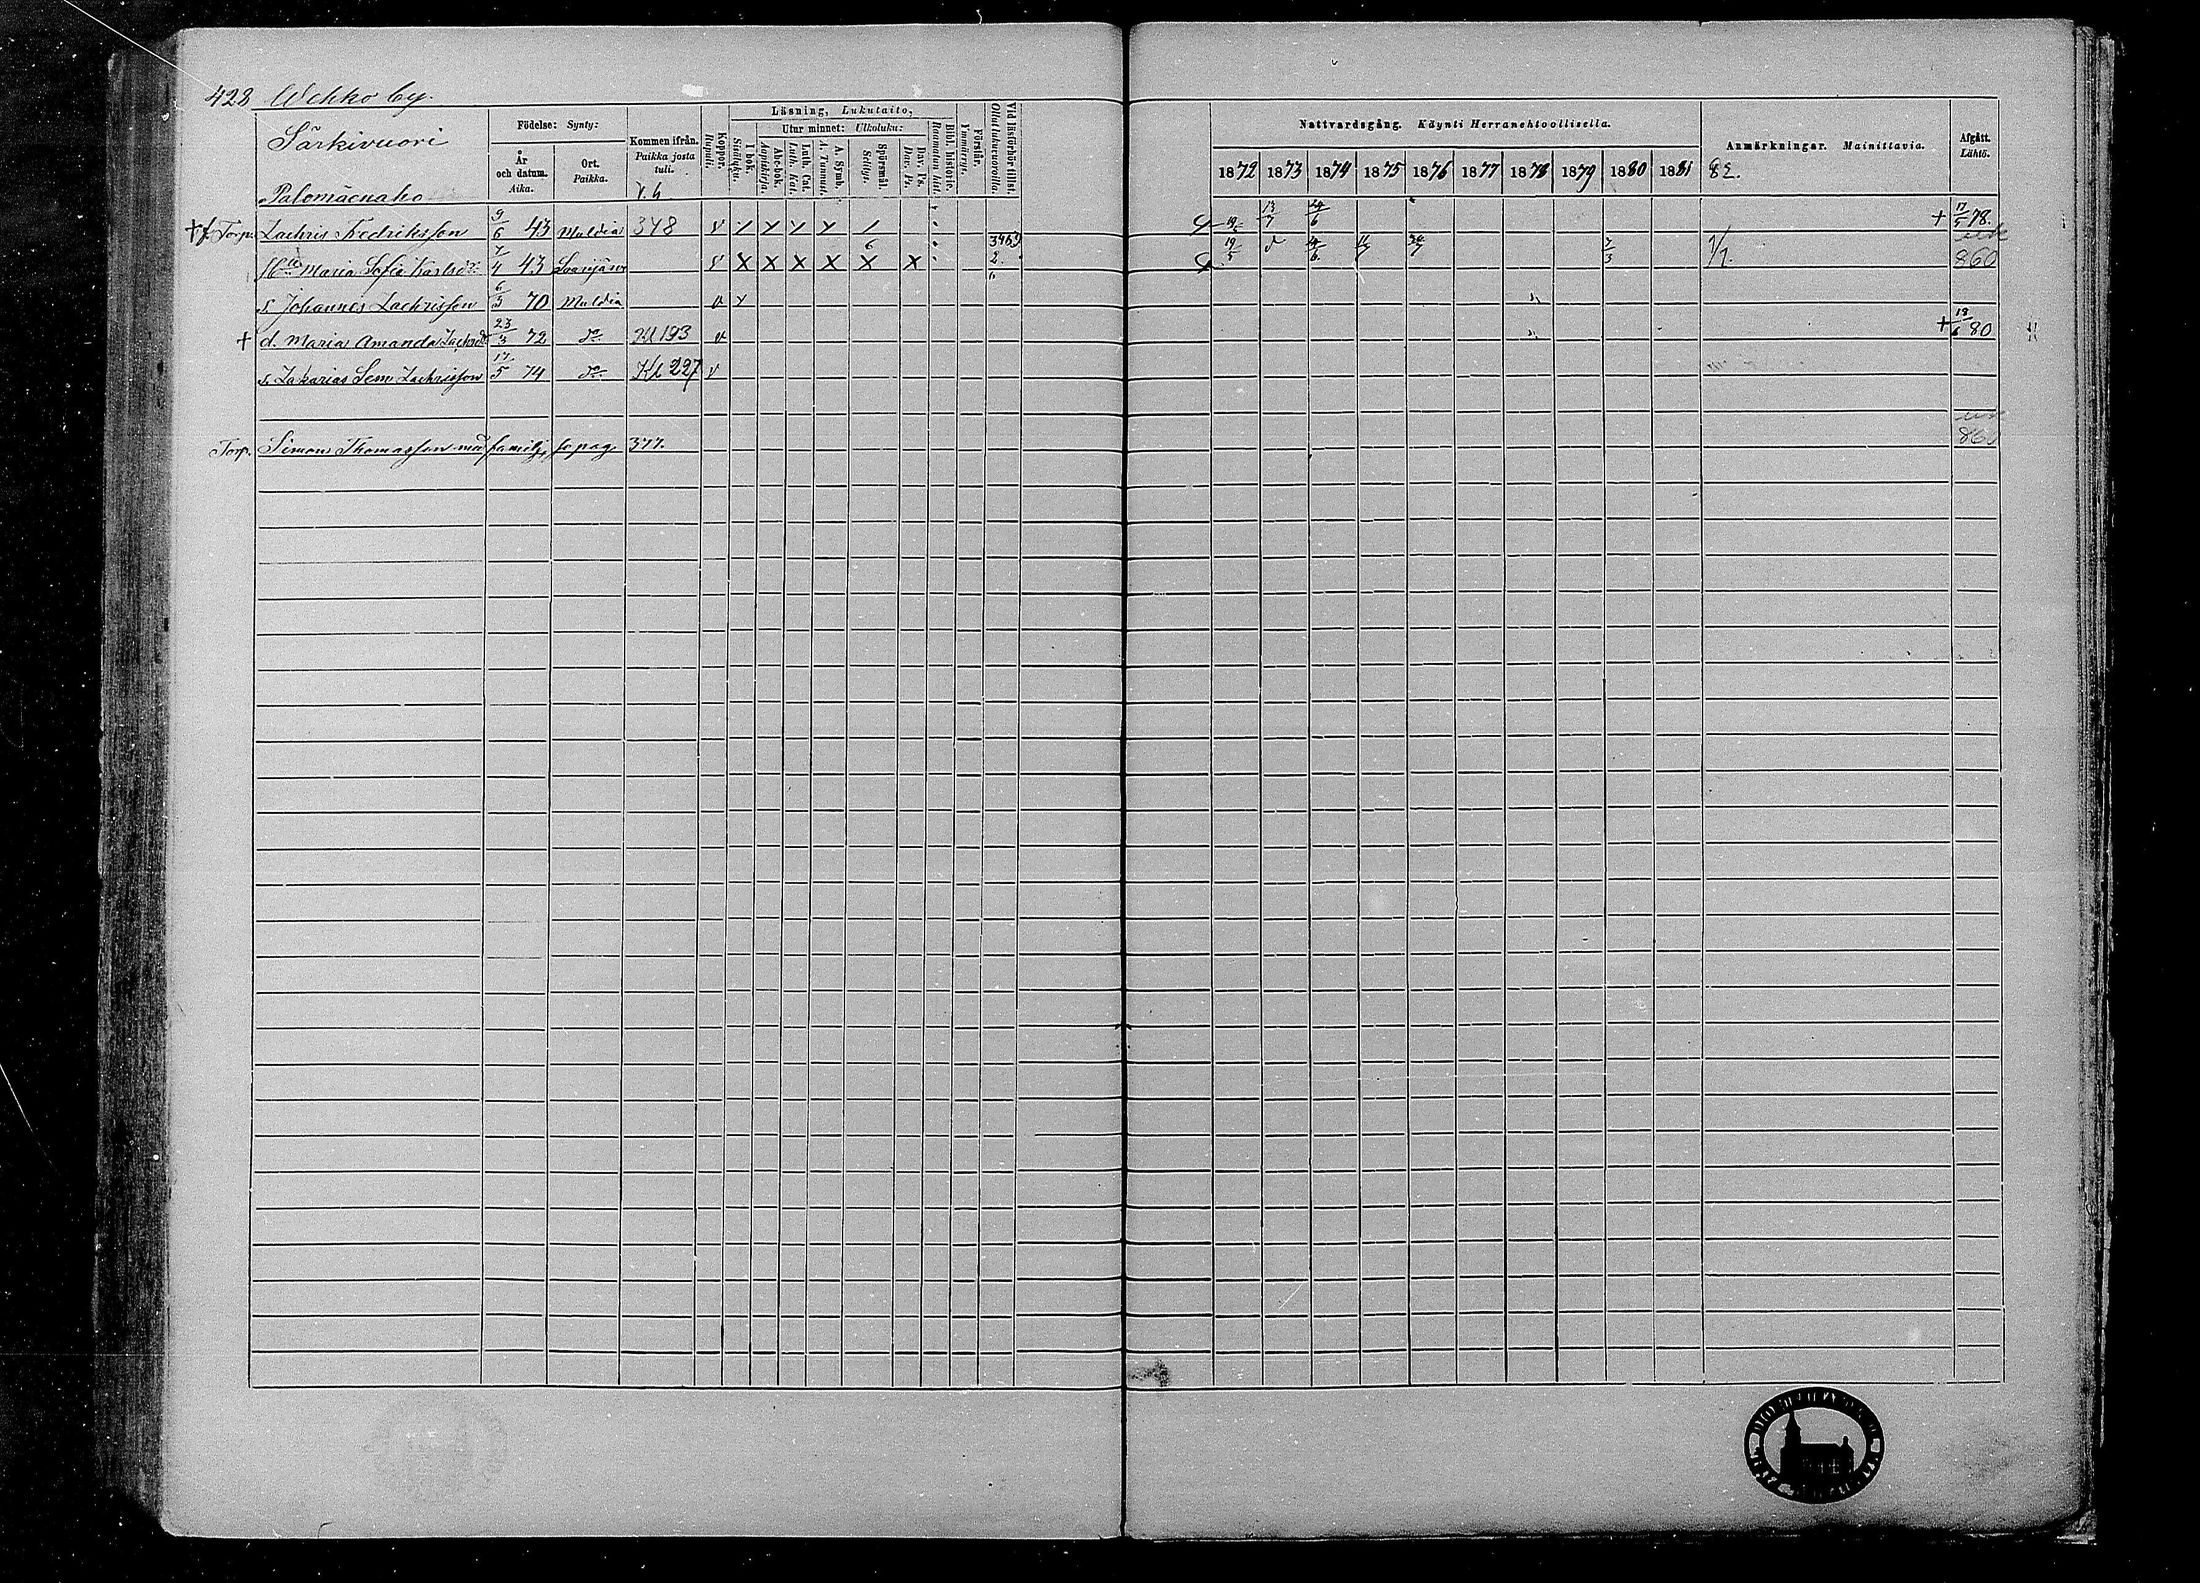 428 Wehko by.
Särkivuori
Palomäenaho
Födelse: Synty:
År och datum. Aika.
Ort. Paikka.
Kommen ifrån. Paikka josta tuli.
Koppor. Rupuli.
Läsning, Lukutaito,
I bok. Sisäluku.
Utur minnet: Ulkoluku:
Abc-bok. Aapiskirja.
Luth. Cat. Luth. Kat.
A. Symb. A. Tunnust.
Spörsmål. Selitys.
Dav. Ps. Dav. Ps.
Bibl. historie. Raamatun hist.
Förstår. Ymmärrys.
Vid läsförhör tillst. Ollut lukuvuoroilla.
Nattvardsgång. Käynti Herranehtoollisella.
1872 1873 1874 1875 1876 1877 1878 1879 1880 1881
Anmärkningar. Mainittavia.
82.
Afgått. Lähtö.
Torp. Zachris Fredriksson 9/6 43 Muldia 348 v 19/5 13/7 + 17/5 78.
Maria Sofia Karlsdr 7/4 43 Saarijärvi v X X X X X X 3463 2. 6 19/5 7/3 860
s. Johannes Zachrisson 6/3 70 Muldia v
+ d. Maria Amanda 23/3 72 do 193 v + 18/6 80
s. Zakarias Sem Zachrisson 17/5 74 do Kl 227 v
Torp. Simon Thomasson med familj, se pag. 377. 860